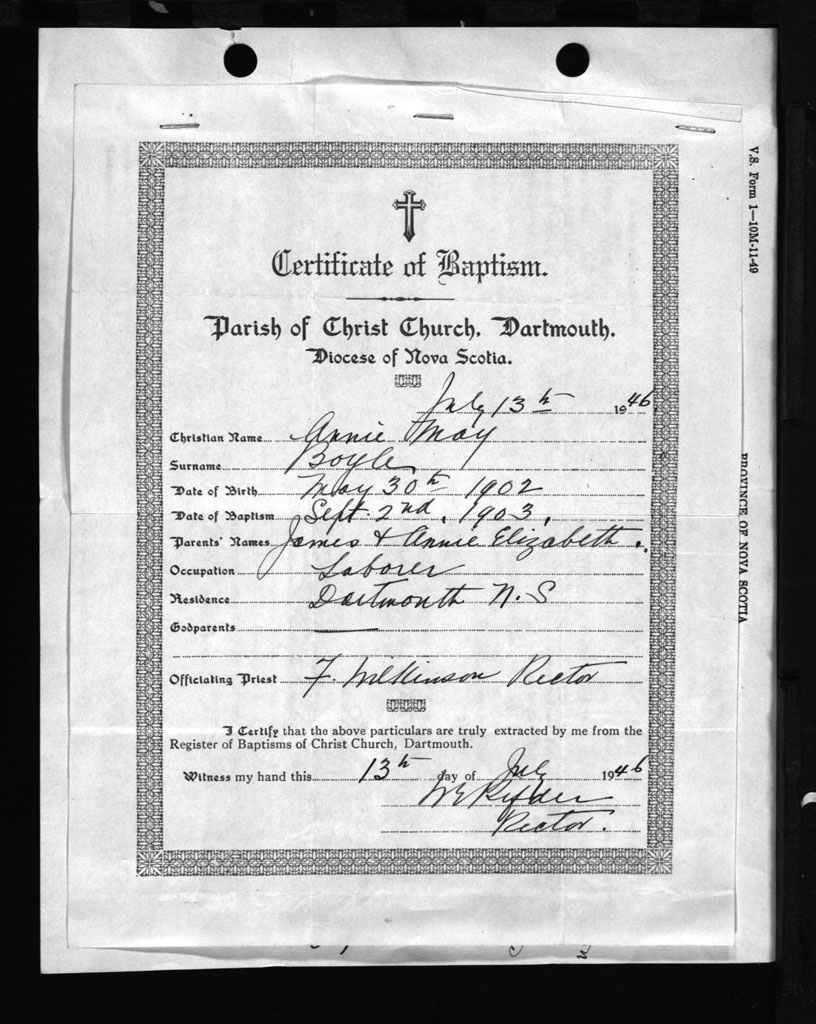 Certificate of Baptism.
Parish of Christ Church, Dartmouth.
Diocese of Nova Scotia.
July 13th 1946
Christian Name Annie May
Surname Boyle
Date of Birth May 30th 1902
Date of Baptism Sept. 2nd. 1903.
Parents' Names James & Annie Elizabeth.
Occupation Laborer
Residence Dartmouth N. S
Godparents
Officiating Priest F. Wilkinson Rector
I Certify that the above particulars are truly extracted by me from the
Register of Baptisms of Christ Church, Dartmouth.
Witness my hand this 13th day of July 1946
W E Ryder
Rector.
V.S. Form 1—10M-11-49
PROVINCE OF NOVA SCOTIA